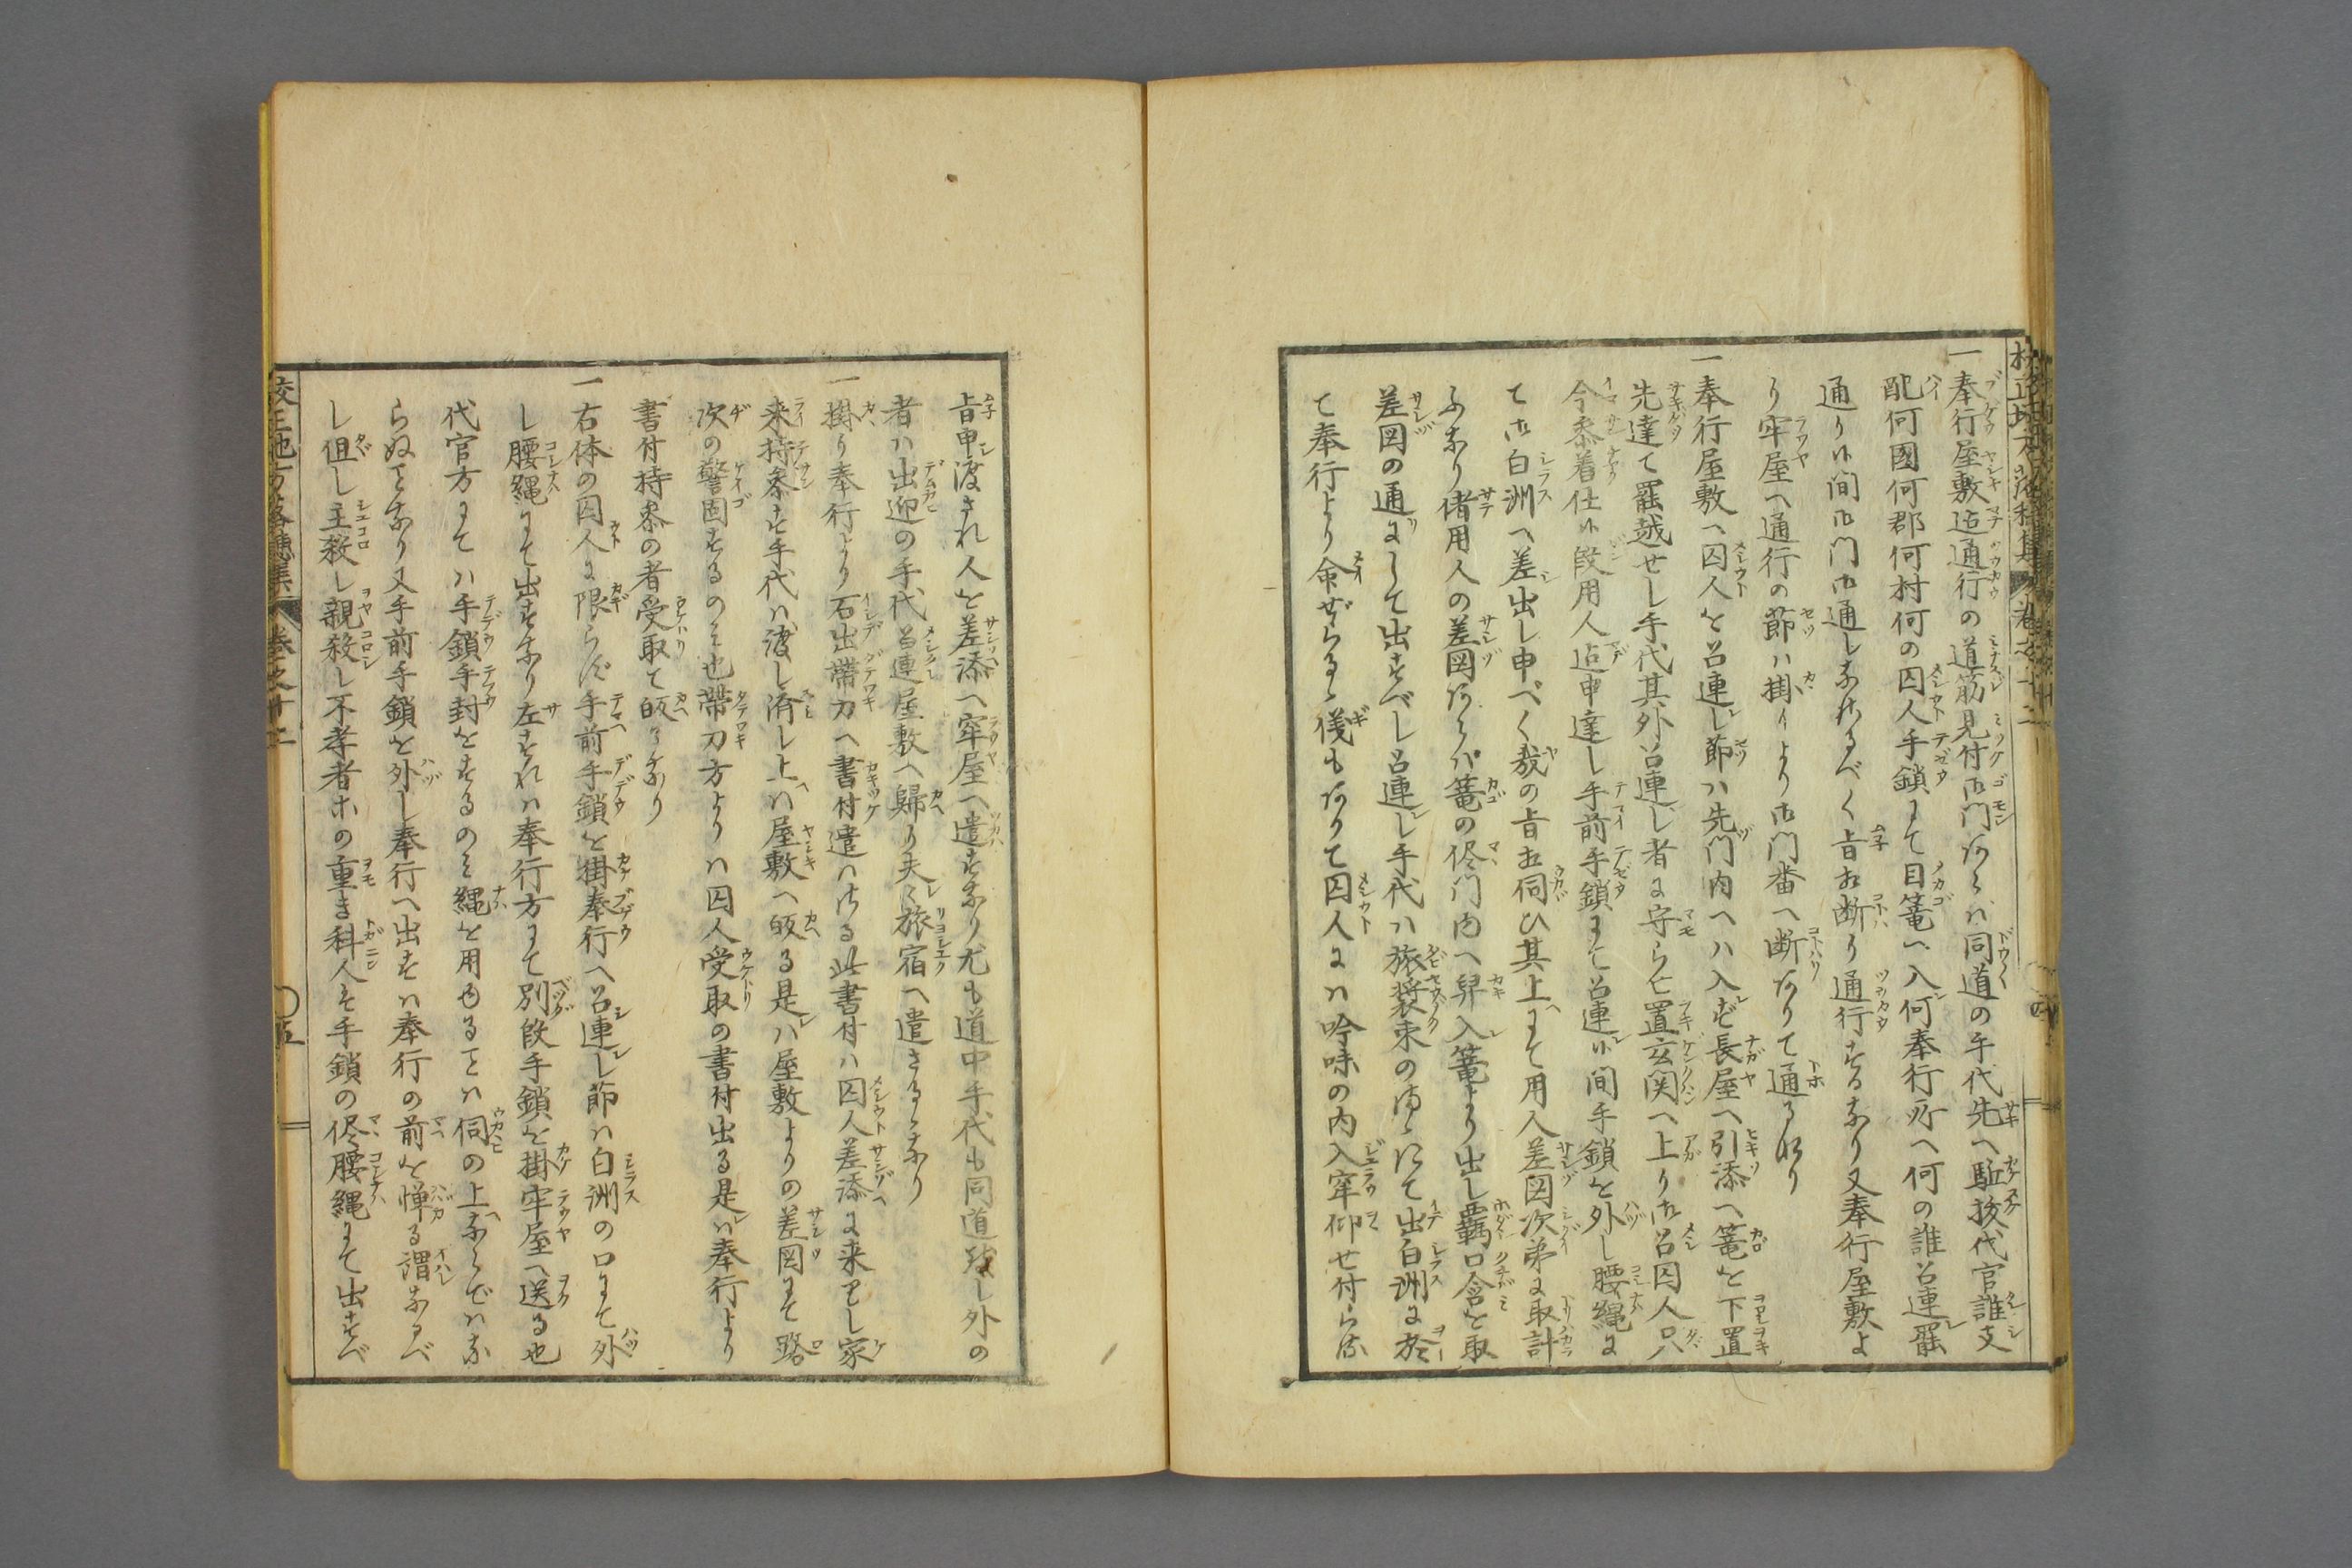 一奉行屋敷迠通行の道筋見付御門あらハ同道の手代先へ駈抜代官誰支
配何國何郡何村何の囚人手鎖にて目篭へ入何奉行所へ何の誰召連罷
通り候間御門御通しなさるべく旨相断り通行するなり又奉行屋敷よ
り牢屋へ通行の節ハ掛りより御門番へ断ありて通るなり
一奉行屋敷へ囚人を召連し節ハ先門内へハ入ず長屋へ引添へ篭を下置
先達て罷越せし手代其外召連し者に守らせ置玄関へ上り御召囚人只
今参着仕候段用人迠申達し手前手鎖にて召連候間手鎖を外し腰縄に
て御白洲へ差出し申べく哉の旨相伺ひ其上にて用人差図次第に取計
ふなり偖用人の差図あらバ篭の侭門内へ舁入篭より出し覊口含を取
差図の通にして出すべし召連し手代ハ旅装束のまゝにて出白洲に於
て奉行より命ぜらるゝ儀もありて囚人にハ吟味の内入牢仰せ付らる
旨申渡され人を差添へ牢屋へ遣すなり尤も道中手代も同道致し外の
者ハ出迎の手代召連屋敷へ歸り夫々旅宿へ遣さるゝなり
一掛り奉行より石出帶刀へ書付遣ハさる此書付ハ囚人差添に来りし家
来持参す手代ハ渡し済し上ハ屋敷へ皈る是ハ屋敷よりの差図にて路
次の警固するのミ也帶刀方よりハ囚人受取の書付出る是ハ奉行より
書付持参の者受取て皈るなり
一右体の囚人に限らず手前手鎖を掛奉行へ召連し節ハ白洲の口にて外
し腰縄にて出すなり左すれハ奉行方にて別段手鎖を掛牢屋へ送る也
代官方にてハ手鎖手封をするのミ縄を用ゆることハ伺の上ならでハな
らぬことなり又手前手鎖を外し奉行へ出すハ奉行の前を憚る謂なるべ
し但し主殺し親殺し不孝者ホの重き科人ハ手鎖の侭腰縄にて出すべ
校正地方落穂集 巻之十二 ○五